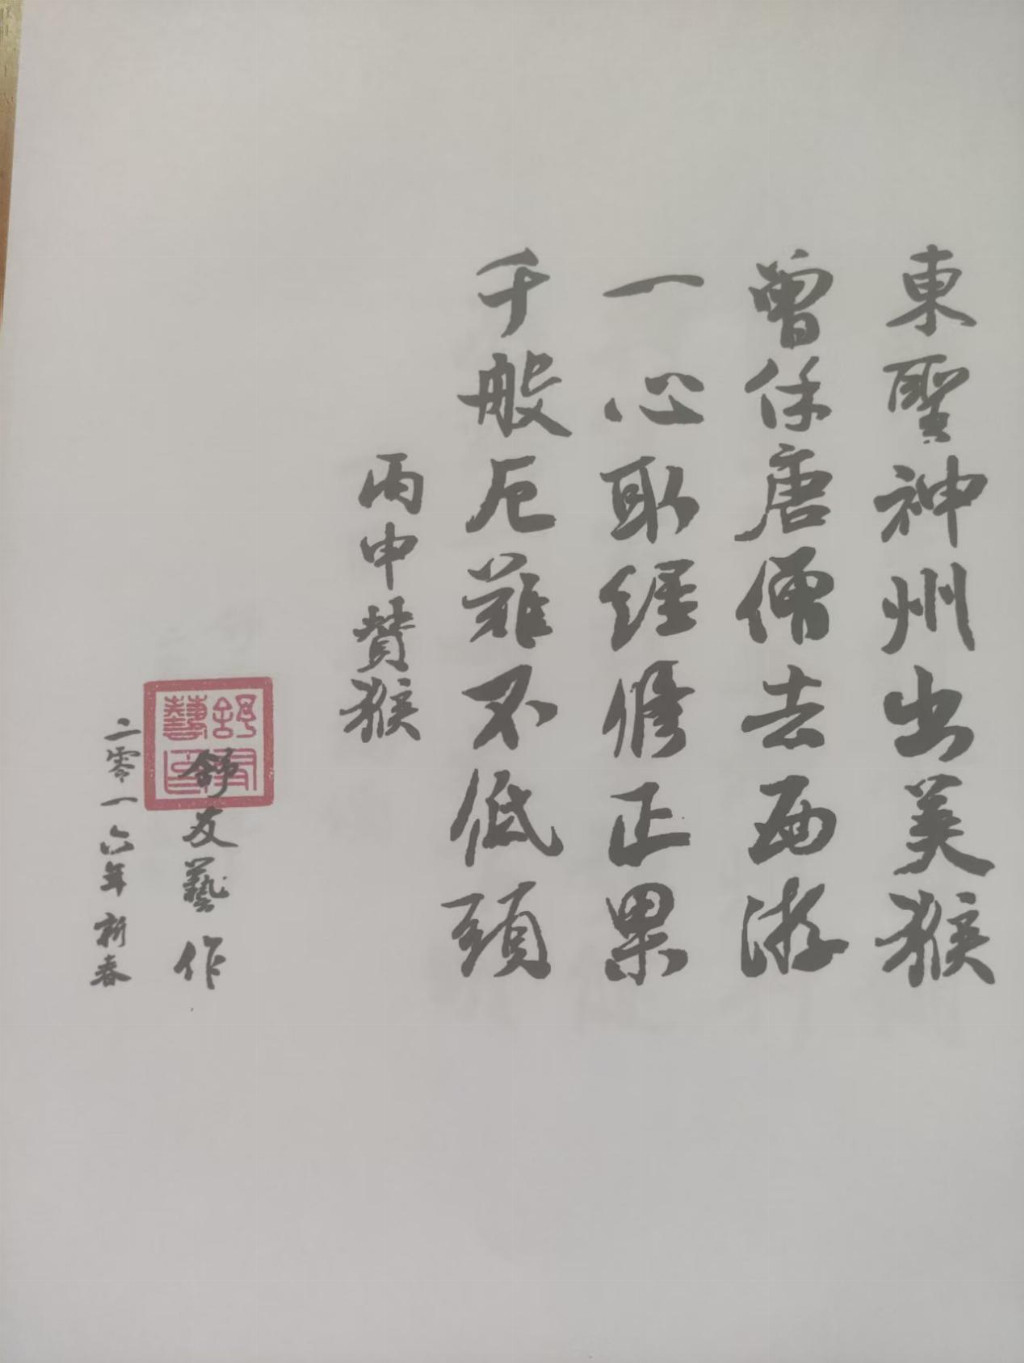 東聖神州出美猴
曾保唐僧去西游
一心取經修正果
千般厄難不低頭
丙申贊猴
舒友藝作
二零一六年新春
舒友藝印